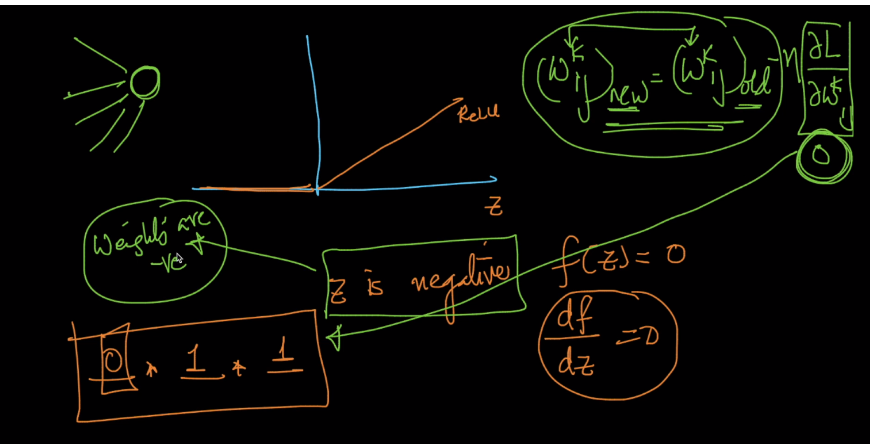 (W^k_ij)_new = (W^k_ij)_old - η ∂L/∂W^k_ij
0
ReLU
Z
Weights are
-ve
Z is negative
f(z) = 0
df/dz = 0
0 * 1 * 1